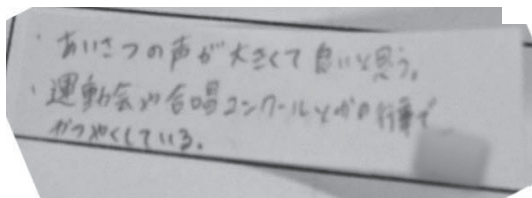 ・あいさつの声が大きくて良いと思う。
・運動会や合唱コンクールとかの行事で
かつやくしている。